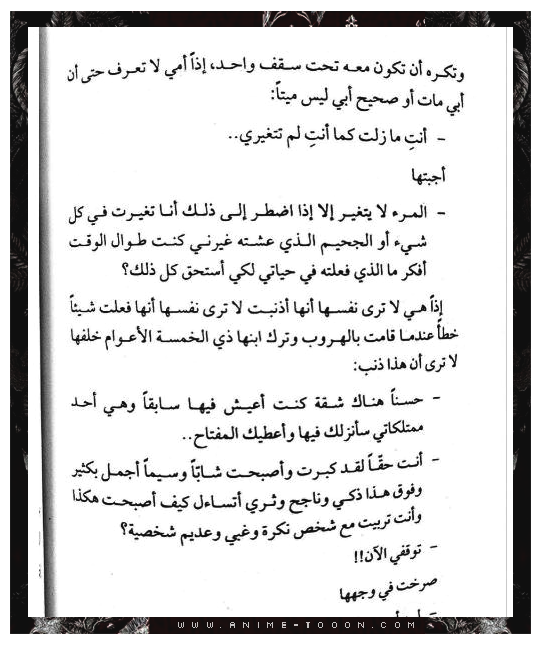 وتكره أن تكون معه تحت سقف واحد، إذاً أمي لا تعرف حتى أن
أبي مات أو صحيح أبي ليس ميتاً:
- أنتِ ما زلت كما أنتِ لم تتغيري..
أجبتها
- المرء لا يتغير إلا إذا اضطر إلى ذلك أنا تغيرت في كل
شيء أو الجحيم الذي عشته غيرني كنت طوال الوقت
أفكر ما الذي فعلته في حياتي لكي أستحق كل ذلك؟
إذاً هي لا ترى نفسها أنها أذنبت لا ترى نفسها أنها فعلت شيئاً
خطأً عندما قامت بالهروب وترك ابنها ذي الخمسة الأعوام خلفها
لا ترى أن هذا ذنب:
- حسناً هناك شقة كنت أعيش فيها سابقاً وهي أحد
ممتلكاتي سأنزلك فيها وأعطيك المفتاح..
- أنت حقّاً لقد كبرت وأصبحت شابّاً وسيماً أجمل بكثير
وفوق هذا ذكي وناجح وثري أتساءل كيف أصبحت هكذا
وأنت تربيت مع شخص نكرة وغبي وعديم شخصية؟
- توقفي الآن!!
صرخت في وجهها
WWW.ANIME-TOOON.COM